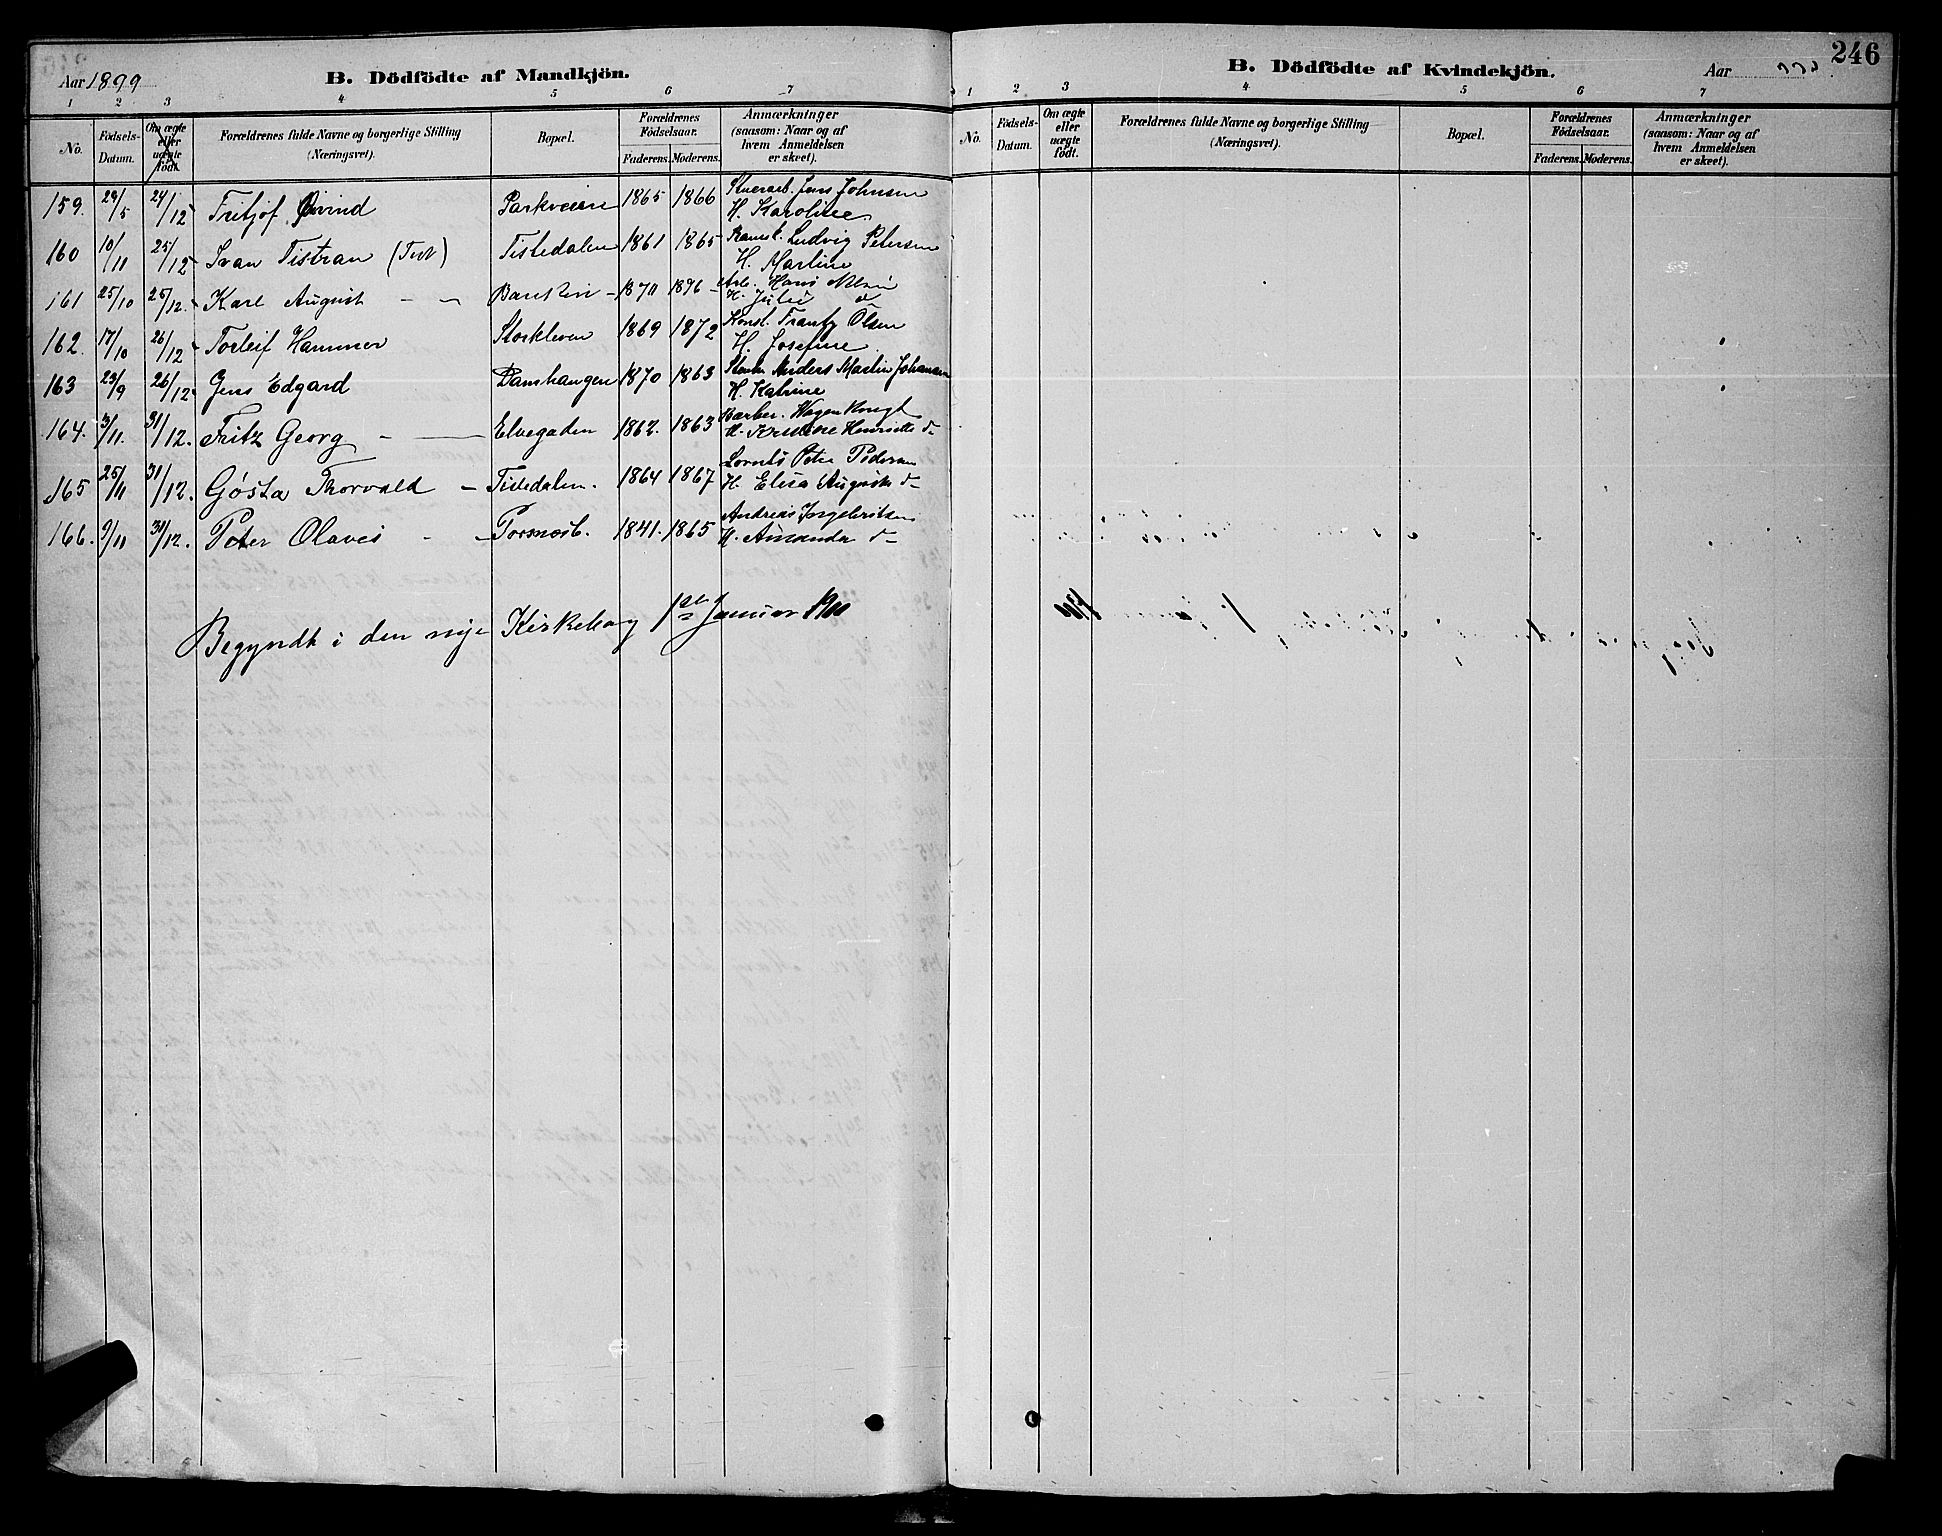 246
Aar 1899 B. Dödfödte af Mandkjön.
1 2 3 4 5 6 7
No. Födsels-Datum. Om ægte eller uægte født. Forældrenes fulde Navne og borgerlige Stilling (Næringsvei). Bopæl. Forældrenes Födselsaar. Faderens. Moderens. Anmærkninger (saasom: Naar og af hvem Anmeldelsen er skeet).
159. 29/5 24/12 Fritjof Øivind Parkveien 1865 1866 Stuerarb. Jens Johnsen
H. Karoline
160 10/11 25/12 Ivan Tistran Tistedalen 1861 1865 Ludvig Petersen
H. Martine
161 25/10 25/12. Karl August - - 1870 1876 Arb. Hans Olsen
H. Julie do
162. 17/10 26/12 Torleif Hammer Storkleven 1869 1872 Konst. Frantz Olsen
H. Josefine
163 23/9 26/12 Jens Edgard Damhaugen 1870 1863 Anders Martin Johansen
H. Katrine
164. 3/11. 31/12. Fritz Georg - Elvegaden 1862. 1863 Barber.
H. Kristine Henriette do
165 25/11 31/12. Gösta Thorvald - Tistedalen. 1864 1867 Lornts Peter Pedersen
H. Elisa Auguste do
166. 9/11 31/12. Peter Olaves - - 1841. 1865 Andreas Ingebritsen
H. Amanda do
Begyndt i den nye Kirkebog 1ste Januar 1900
B. Dödfödte af Kvindekjön. Aar
1 2 3 4 5 6 7
No. Födsels-Datum. Om ægte eller uægte født. Forældrenes fulde Navne og borgerlige Stilling (Næringsvei). Bopæl. Forældrenes Födselsaar. Faderens. Moderens. Anmærkninger (saasom: Naar og af hvem Anmeldelsen er skeet).